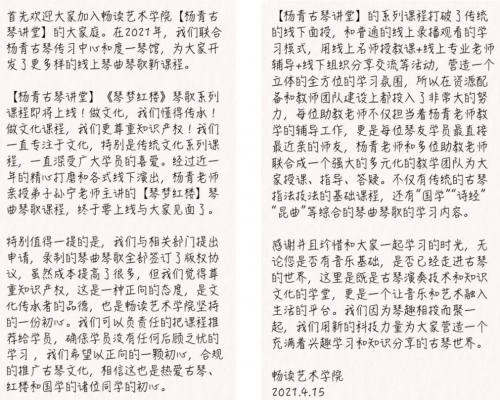 首先欢迎大家加入畅读艺术学院【杨青古
琴讲堂】的大家庭。在2021年，我们联合
杨青古琴传习中心和度一琴馆，为大家开
发了更多样的线上琴曲琴歌新课程。
【杨青古琴讲堂】《琴梦红楼》琴歌系列
课程即将上线！做文化，我们懂得传承！
做文化课程，我们更尊重知识产权！我们
一直专注于文化，特别是传统文化系列课
程，一直深受广大学员的喜爱。经过近一
年的精心打磨和各式线下演出，杨青老师
亲授弟子孙宁老师主讲的【琴梦红楼】琴
曲琴歌课程，终于要上线与大家见面了。
特别值得一提的是，我们与相关部门提出
申请，录制的琴曲琴歌全部签订了版权协
议，虽然成本提高了很多，但我们觉得尊
重知识产权，这是一种正向的态度，是文
化传承者的品德，也是畅读艺术学院坚持
的一份初心。我们可以负责任的把课程推
荐给学员，确保学员没有任何后顾之忧的
学习，我们希望以正向的一颗初心，合规
的推广古琴文化，相信这也是热爱古琴、
红楼和国学的诸位同学的初心。
【杨青古琴讲堂】的系列课程打破了传统
的线下面授，和普通的线上录播观看的学
习模式，用线上名师授教课+线上专业老师
辅导+线下组织分享交流等活动，营造一个
立体的全方位的学习氛围，所以在资源配
备和教师团队建设上都投入了非常大的努
力，每位助教老师不仅担当着杨青老师教
学的辅导工作，更是每位琴友学员最直接
最近亲的师友，杨青老师和多位助教老师
联合成一个强大的多元化的教学团队为大
家授课、指导、答疑。不仅有传统的古琴
指法技法的基础课程，还有“国学”“诗经”
“昆曲”等综合的琴曲琴歌的学习内容。
感谢并且珍惜和大家一起学习的时光，无
论您是否有音乐基础，是否已经走进古琴
的世界，这里是既是古琴演奏技术和知识
文化的学堂，更是一个让音乐和艺术融入
生活的平台。我们因为琴趣相投而聚一
起，我们用新的科技力量为大家营造一个
充满着兴趣学习和知识分享的古琴世界。
畅读艺术学院
2021.4.15